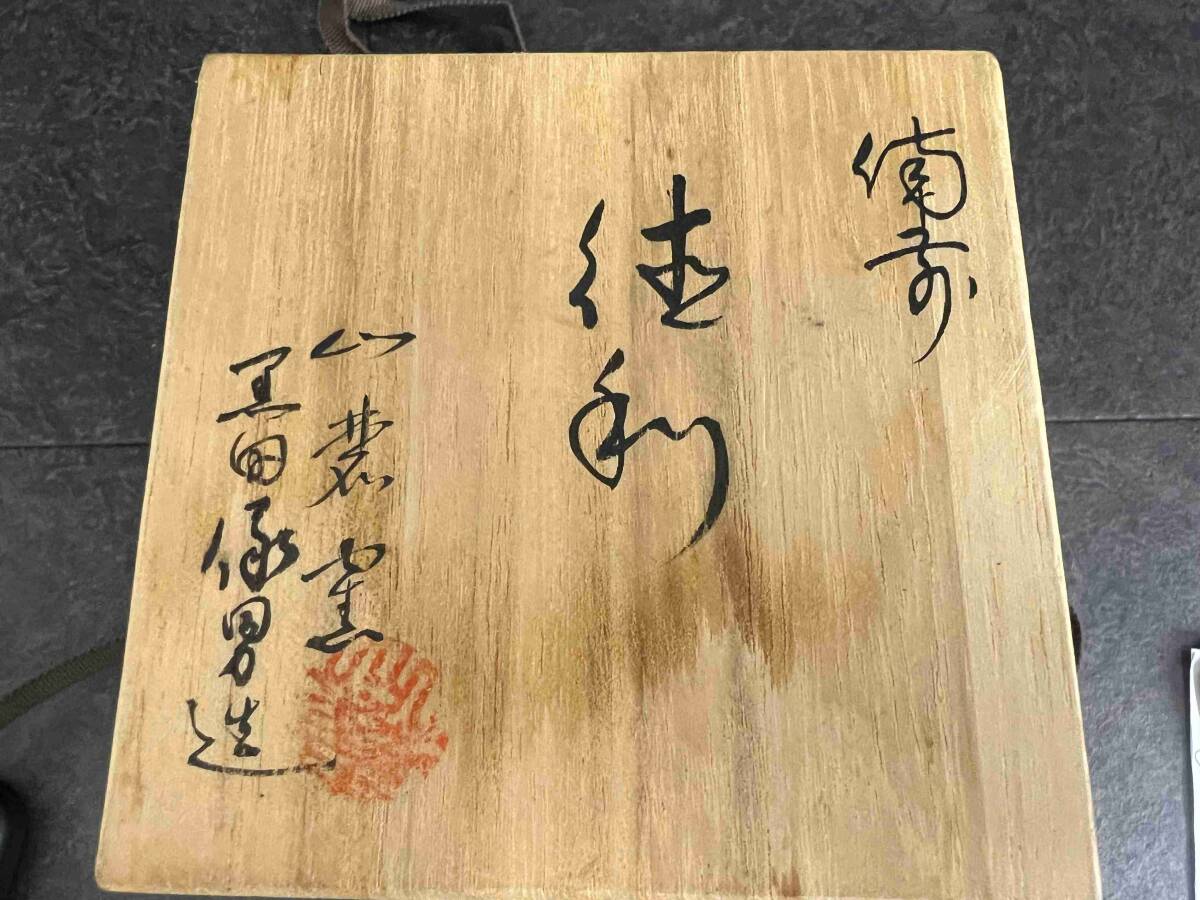 備前
徳利
山麓窯
黒田男造